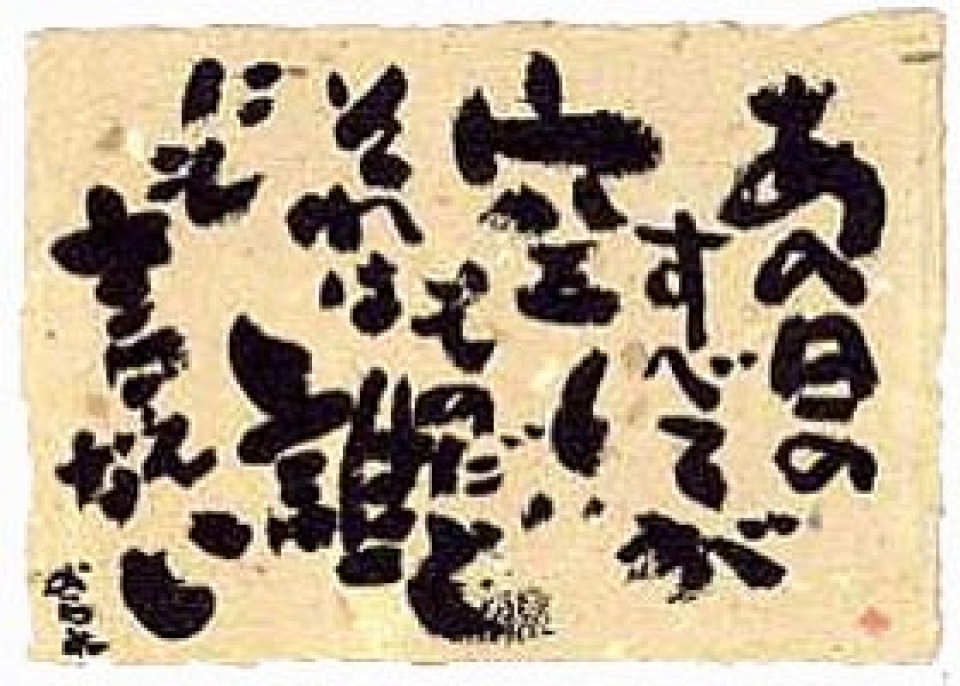 あの日の
すべてが
空しい
ものだと
それは
誰
にも
言えない